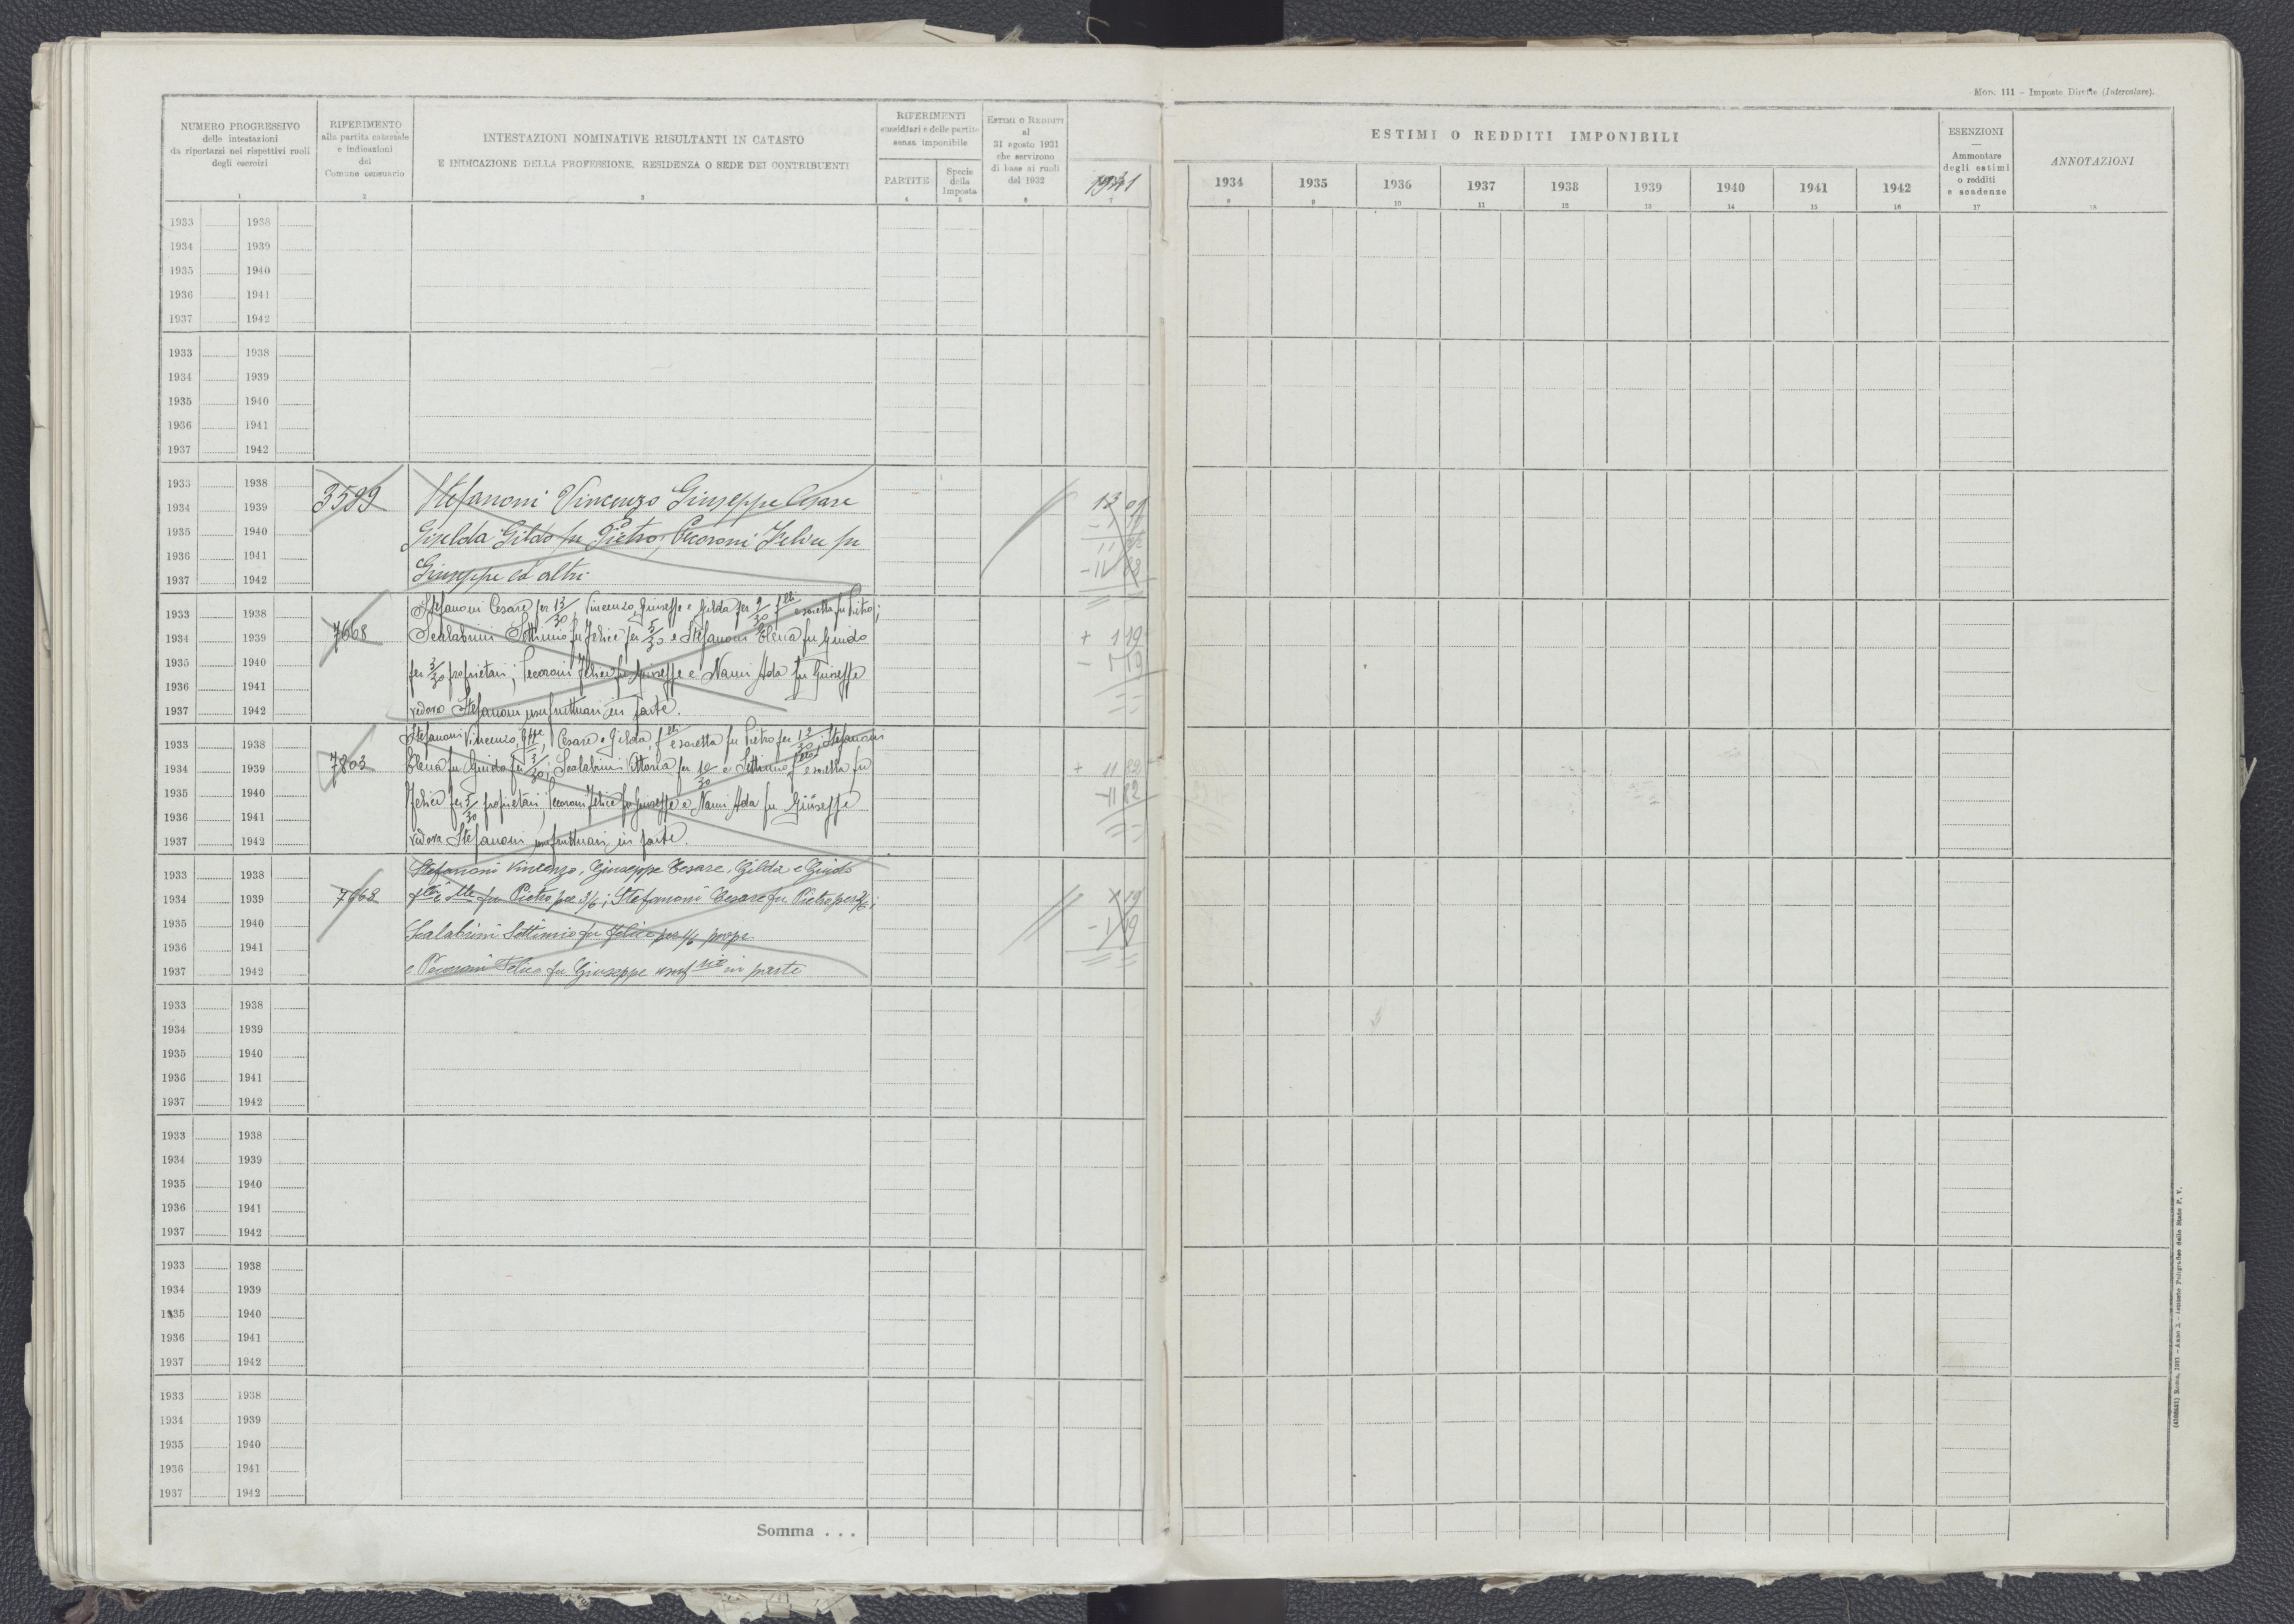 Mod. 111 - Imposte Dirette (Intercalare).
NUMERO PROGRESSIVO
delle intestazioni
da riportarsi nei rispettivi ruoli
degli esercizi
1
RIFERIMENTO
alla partita catastale
e indicazioni
del
Comune censuario
2
INTESTAZIONI NOMINATIVE RISULTANTI IN CATASTO
E INDICAZIONE DELLA PROFESSIONE, RESIDENZA O SEDE DEI CONTRIBUENTI
3
RIFERIMENTI
sussidiari e delle partite
senza imponibile
PARTITE
4
Specie
della
Imposta
5
ESTIMI O REDDITI
al
31 agosto 1931
che servirono
di base ai ruoli
del 1932
6
7
ESTIMI O REDDITI IMPONIBILI
1934 1935 1936 1937 1938 1939 1940 1941 1942
8 9 10 11 12 13 14 15 16
ESENZIONI
Ammontare
degli estimi
o redditi
e scadenze
17
ANNOTAZIONI
18
1933 1938
1934 1939
1935 1940
1936 1941
1937 1942
1933 1938
1934 1939
1935 1940
1936 1941
1937 1942
1933 1938
1934 1939 3589 Stefanoni Vincenzo Giuseppe Cesare 13 01
1935 1940 Giselda Gildo fu Pietro; Pecoroni Felice fu
1936 1941 11 82
1937 1942 Giuseppe ed altri - 11 82
1933 1938 Stefanoni Cesare per 13/30, Vincenzo, Giuseppe e Gilda per 9/30 f.lli e sorella fu Pietro;
1934 1939 7668 Scalabrini Settimio fu Felice per 5/30 e Stefanoni Elena fu Guido + 1 19
1935 1940 per 3/30 proprietari; Pecoroni Felice fu Giuseppe e Nanni Ada fu Giuseppe - 1 19
1936 1941
1937 1942 vedova Stefanoni usufruttuari in parte.
1933 1938 Stefanoni Vincenzo, G.ppe, Cesare e Gilda, f.lli e sorella fu Pietro per 12/30; Stefanoni
1934 1939 7803 Elena fu Guido per 3/30; Scalabrini Vittoria per 10/30 e Settimio e sorella fu + 11 82
1935 1940 Felice per 5/30 proprietari; Pecoroni Felice fu Giuseppe e Nanni Ada fu Giuseppe - 11 82
1936 1941
1937 1942 vedova Stefanoni usufruttuari in parte.
1933 1938 Stefanoni Vincenzo, Giuseppe Cesare, Gilda e Guido
1934 1939 7668 fu Pietro per 3/6; Stefanoni Cesare fu Pietro per 2/6; 1 19
1935 1940 Scalabrini Settimio fu Felice per 1/6 prop. - 1 19
1936 1941
1937 1942 e Pecoroni Felice fu Giuseppe in parte
1933 1938
1934 1939
1935 1940
1936 1941
1937 1942
1933 1938
1934 1939
1935 1940
1936 1941
1937 1942
1933 1938
1934 1939
1935 1940
1936 1941
1937 1942
1933 1938
1934 1939
1935 1940
1936 1941
1937 1942
Somma . . .